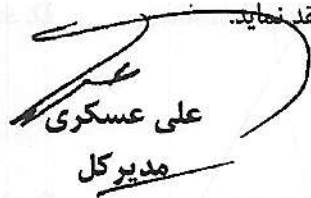 قد نماید.
علی عسکری
مدیر کل